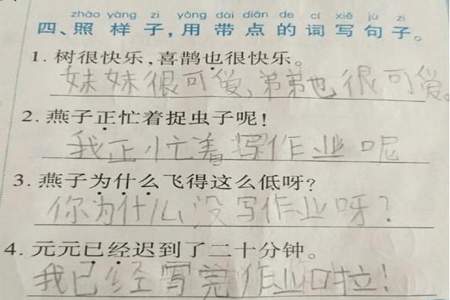 zhào yàng zi yòng dài diǎn de cí xiě jù zi
四、照样子,用带点的词写句子。
1. 树很快乐,喜鹊也很快乐。
妹妹很可爱,弟弟也很可爱。
2. 燕子正忙着捉虫子呢!
我正忙着写作业呢
3. 燕子为什么飞得这么低呀?
你为什么没写作业呀?
4. 元元已经迟到了二十分钟。
我已经写完作业啦!